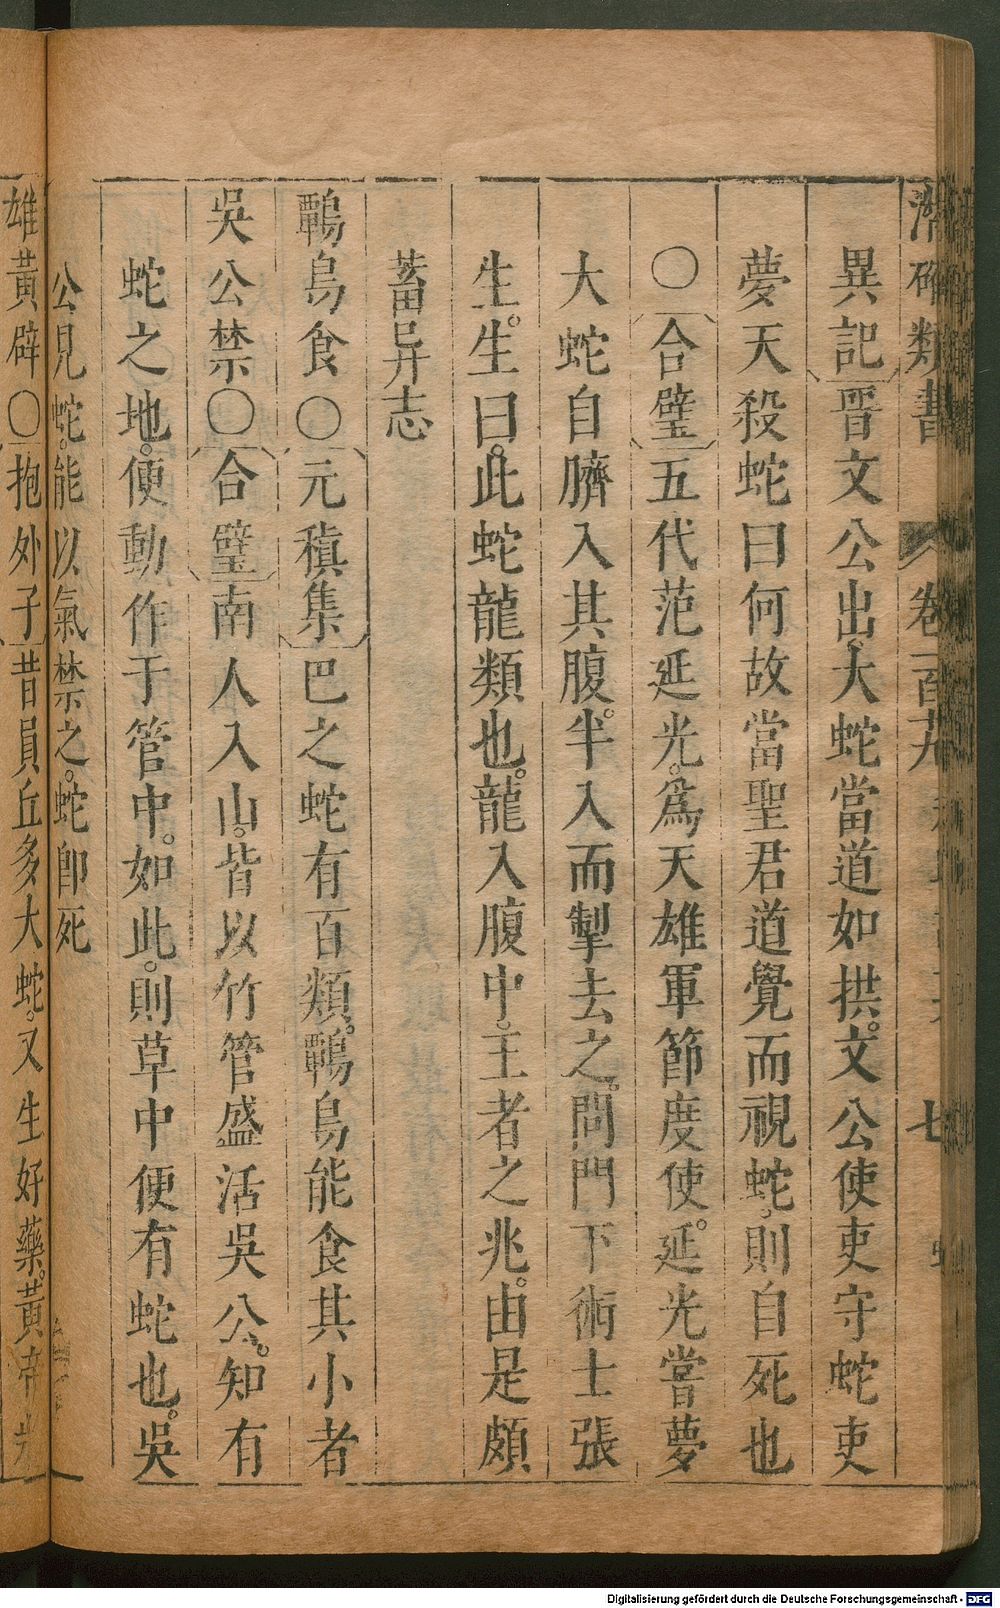 類書 卷一百九 七
異記晋文公出大蛇當道如拱文公使吏守蛇吏
夢天殺蛇曰何故當聖君道覺而視蛇則自死也
〇合璧五代范延光爲天雄軍節度使延光嘗夢
大蛇自臍入其腹半入而掣去之問門下術士張
生生曰此蛇龍類也龍入腹中王者之兆由是頗
蓄异志
鸅鳥食〇元稹集巴之蛇有百類鸅鳥能食其小者
吳公禁〇合璧南人入山皆以竹管盛活吳公知有
蛇之地便動作于管中如此則草中便有蛇也吳
公見蛇能以氣禁之蛇卽死
雄黃辟〇抱外子昔員丘多大蛇又生好藥黃帝
Digitalisierung gefördert durch die Deutsche Forschungsgemeinschaft - DFG